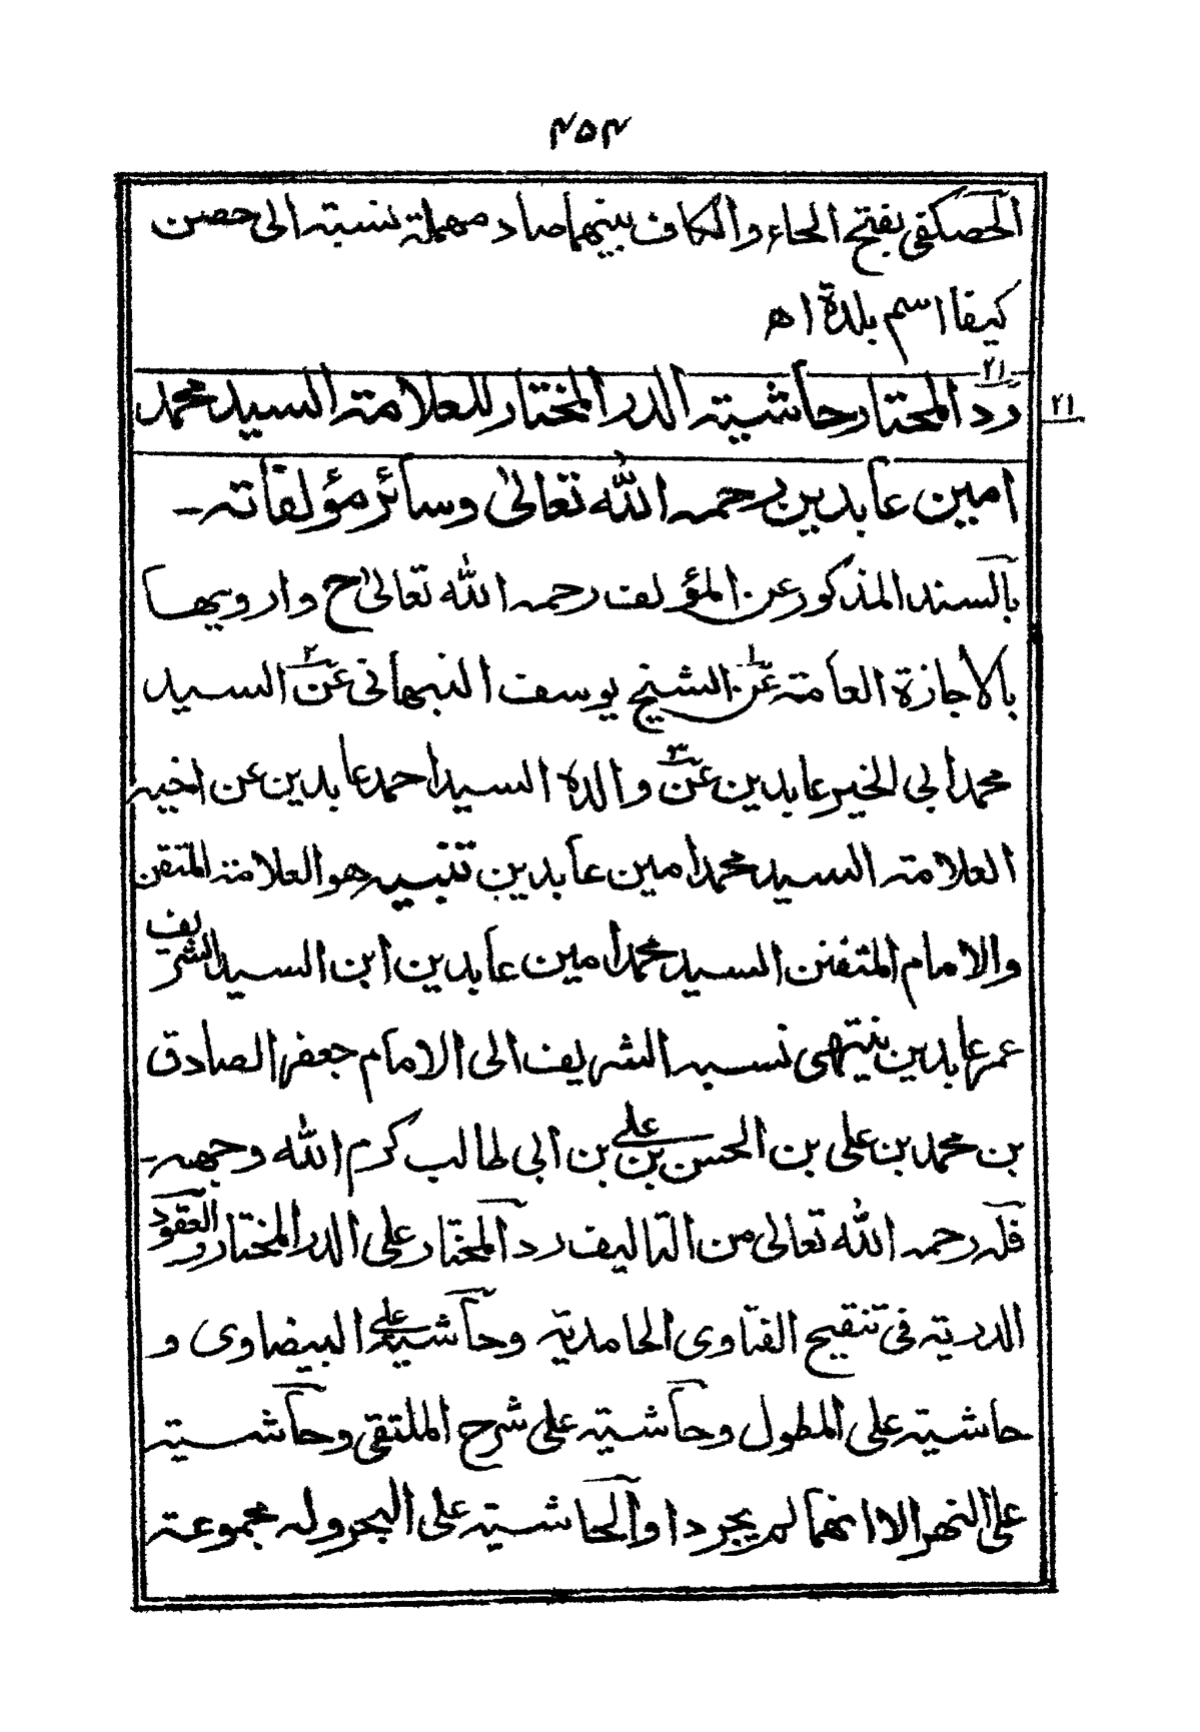 ۴۵۴
الحصكفى بفتح الحاء والكاف بينهما صاد مهملة نسبته الى حصن
كيفا اسم بلدة اھ
۲۱
رد المحتار حاشيته الدر المختار للعلامته السيد محمد
۲۱
امين عابدين رحمه الله تعالىٰ وسائر مؤلفاته ـ
بالسند المذكور عن المؤلف رحمه الله تعالىٰ ح وارويها
بالاجازة العامته عن۱ الشيخ يوسف النبهانى عن۲ السيد
محمد ابى الخير عابدين عن۳ والده السيد احمد عابدين عن اخيه
العلامته السيد محمد امين عابدين تنبيه هو العلامته المتقن
والامام المتفنن السيد محمد امين عابدين ابن السيد الشريف
عمر عابدين ينتهى نسبه الشريف الى الامام جعفر الصادق
بن محمد بن على بن الحسن بن على بن ابى طالب كرم الله وجهه ـ
فله رحمه الله تعالى من التاليف رد المختار على الدر المختار و العقود
الدريته فى تنقيح الفتاوى الحامديته وحاشيته على البيضاوى و
حاشيته على المطول وحاشيته على شرح الملتقى وحاشيته
على النهر الا انهما لم يجردا والحاشيته على البحر وله مجموعته